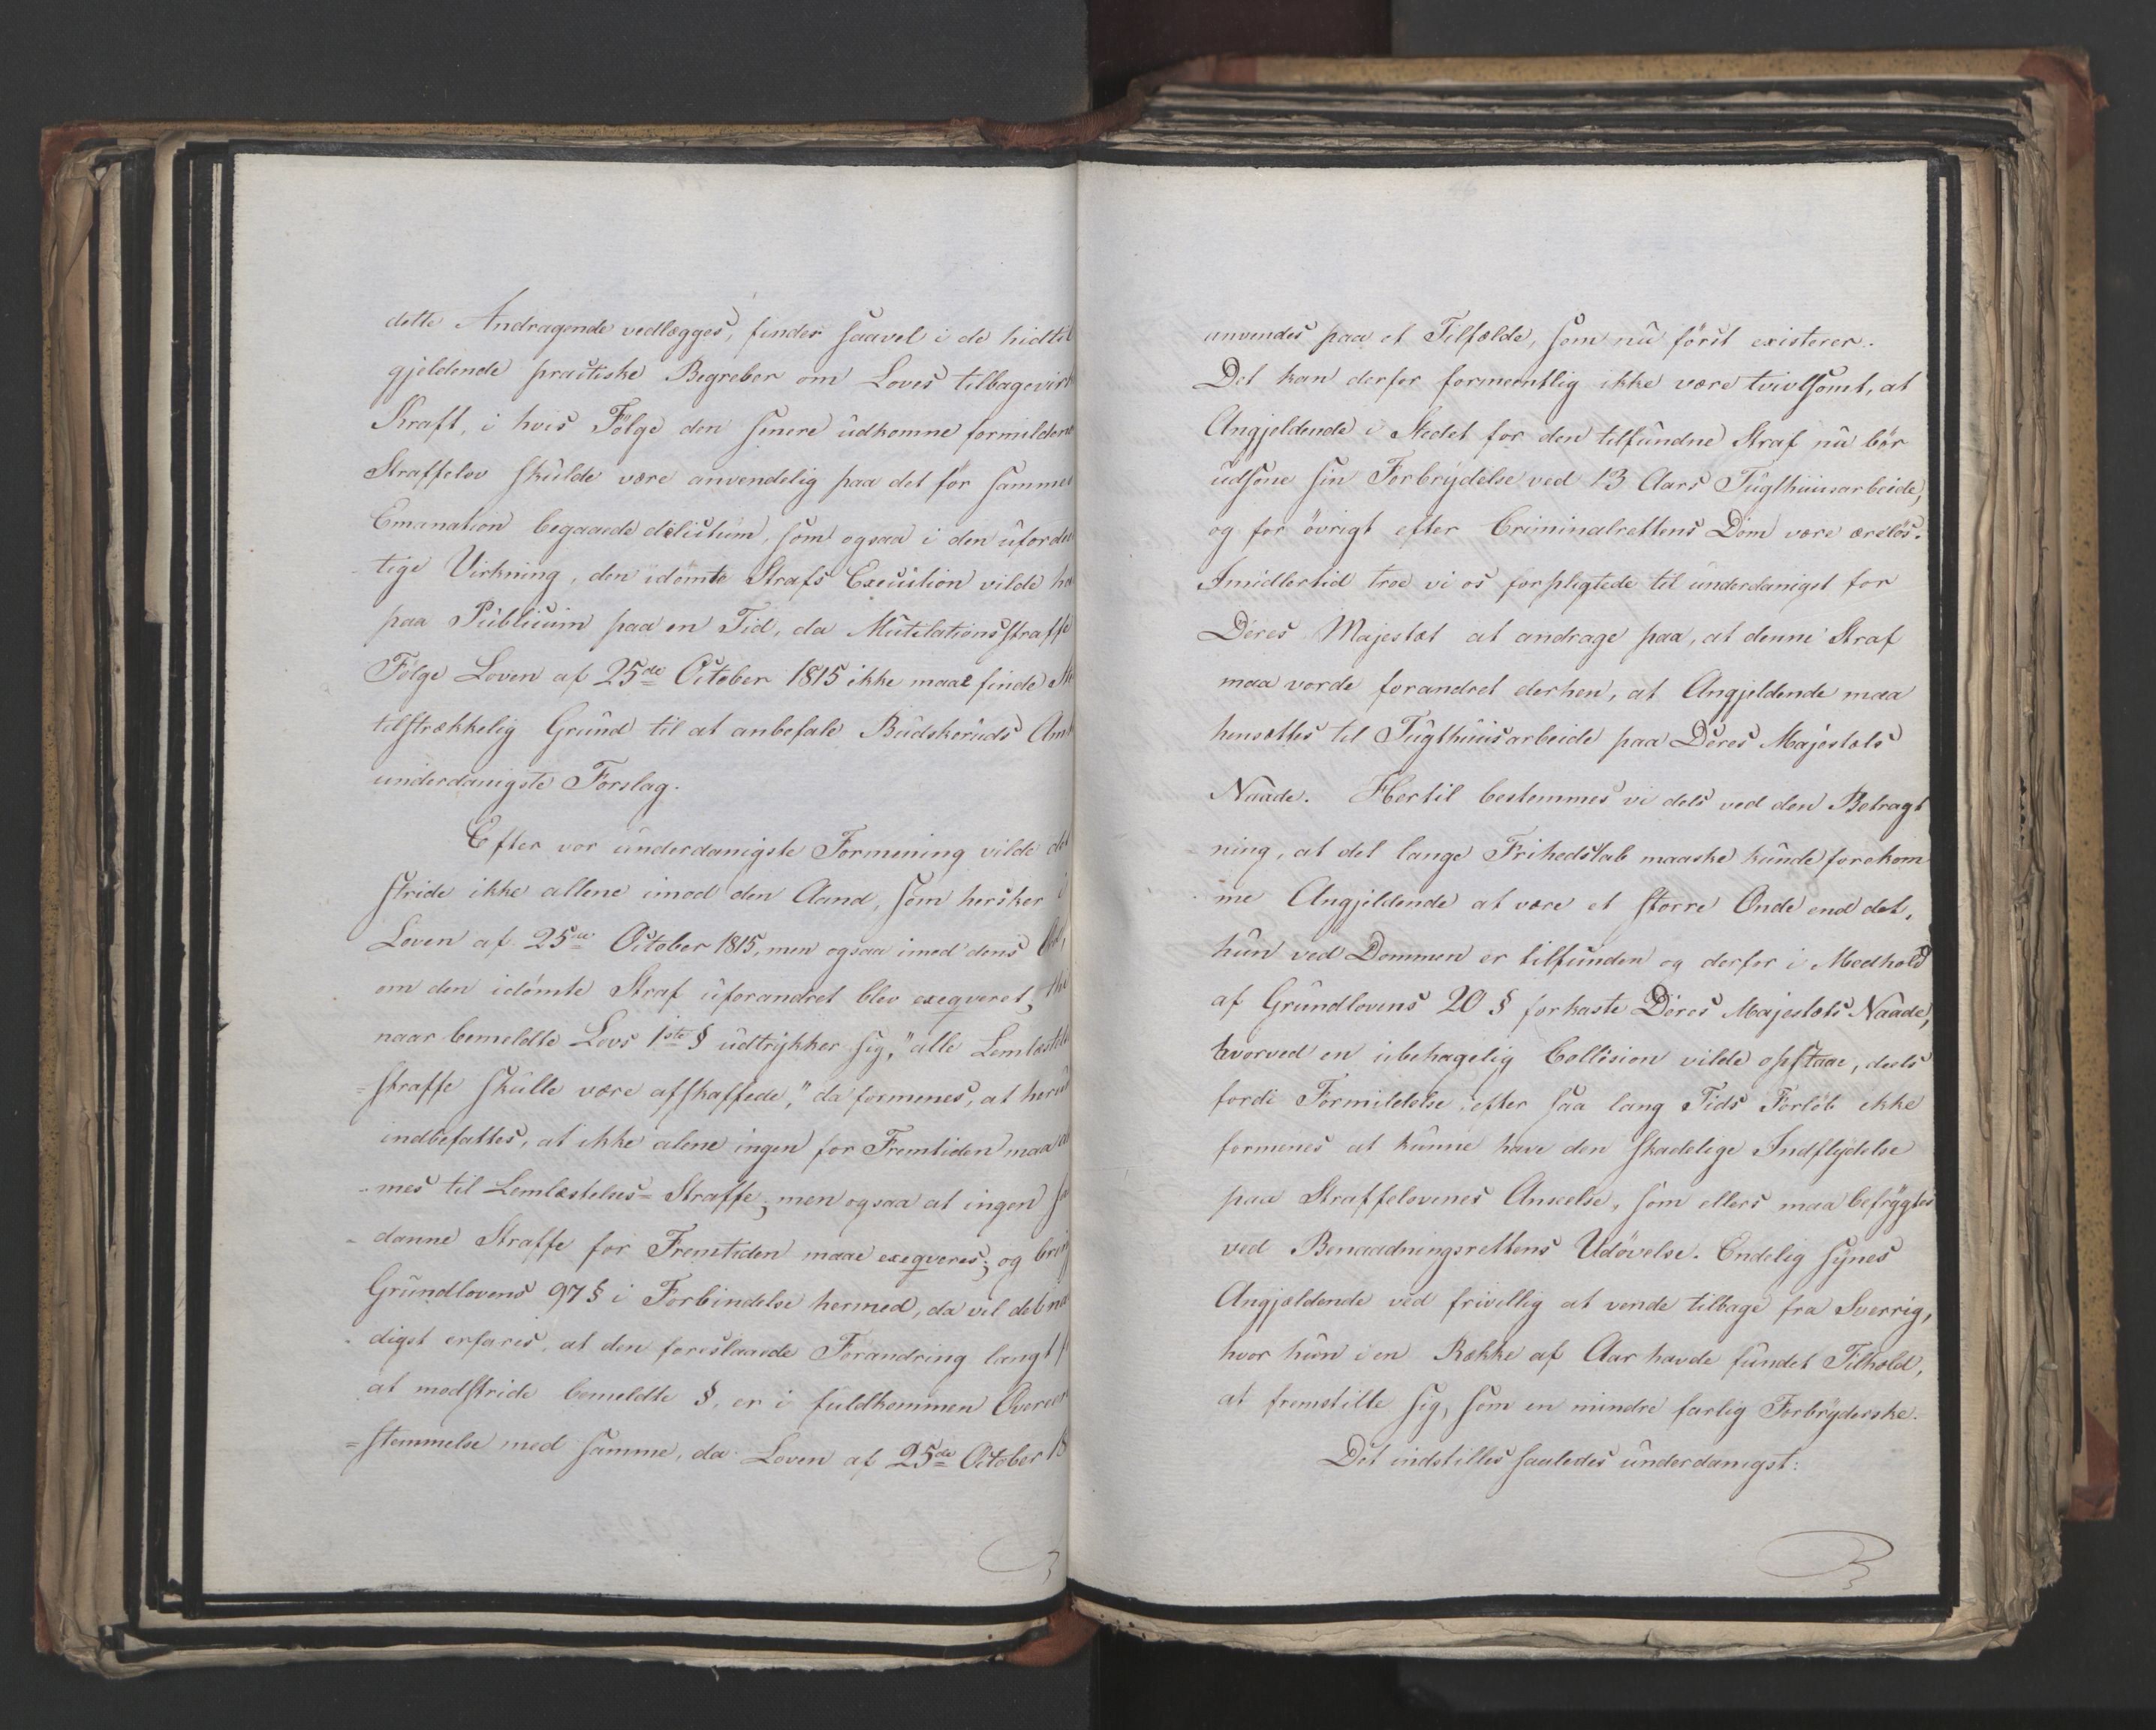 dette Andragende vedlægges, finder saavel i de hidtil
gjeldende practiske Begreber om Loves tilbagevirk
Kraft, i hvis Følge den senere udkomne formildene
Straffelov skulde være anvendelig paa det før sammes
Emanation begaaede delictum, som ogsaa i den ufordel
tige Virkning, den idømte Strafs Execution vilde ha
paa Publicum paa en Tid, da Mutilationsstraffe
Følge Loven af 25de October 1815 ikke maae finde St
tilstrækkelig Grund til at anbefale Budskeruds Amt
underdanigste Forslag.
Efter vor underdanigste Formening vilde det
stride ikke allene imod den Aand, som hersker i
Loven af 25de October 1815, men ogsaa imod dens
om den idømte Straf uforandret blev exeqveret, thi
naar bemeldte Lovs 1ste § udtrykker sig, "alle Lemlæstels
=straffe skulle være afskaffede," da formenes, at herud
indbefattes, at ikke alene ingen for Fremtiden maa
-mes til Lemlæstelses=Straffe, men ogsaa at ingen sa
-danne Straffe for Fremtiden maae exeqveres; og bring
Grundlovens 97 § i Forbindelse hermed, da vil det na
-digst erfares, at den foreslaaede Forandring langt f
at modstride bemeldte §, er i fuldkommen Overeens
=stemmelse med samme, da Loven af 25de October 18
anvendes paa et Tilfælde, som nu først existerer.
Det kan derfor formeentlig ikke være tvivlsomt, at
Angjeldende i Stedet for den tilfundne Straf nu bør
udsone sin Forbrydelse ved 13 Aars Tugthuusarbeide,
og for øvrigt efter Criminalrettens Dom være æreløs.
Imidlertid troe vi os forpligtede til underdanigst for
Deres Majestæt at andrage paa, at denne Straf
maa vorde forandret derhen, at Angjeldende maa
hensættes til Tugthuusarbeide paa Deres Majestæts
Naade. Hertil bestemmes vi dels ved den Betragt
-ning, at det lange Frihedstab maaske kunde forekom
-me Angjeldende at være et større Onde end det,
hun ved Dommen er tilfunden og derfor i Medhold
af Grundlovens 20 § forkaste Deres Majestæts Naade,
hvorved en ubehagelig Collision vilde opstaae, deels
fordi Formildelse efter saa lang Tids Forløb ikke
formenes at kunne have den skadelige Indflydelse
paa Straffelovenes Anseelse, som ellers maa befrygtes
ved Benaadningsrettens Udøvelse. Endelig synes
Angjældende ved frivillig at vende tilbage fra Sverrig,
hvor hun i en Række af Aar havde fundet Tilhold,
at fremstille sig, som en mindre farlig Forbryderske.
Det indstilles saaledes underdanigst: